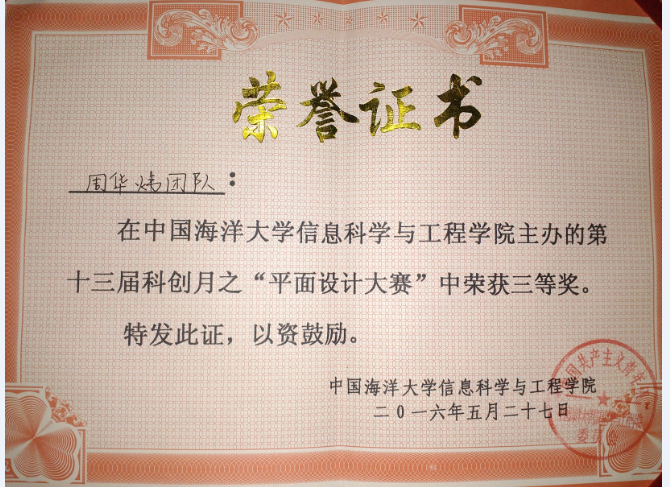 荣誉证书
周华炜团队：
在中国海洋大学信息科学与工程学院主办的第
十三届科创月之“平面设计大赛”中荣获三等奖。
特发此证，以资鼓励。
中国海洋大学信息科学与工程学院
二0一六年五月二十七日